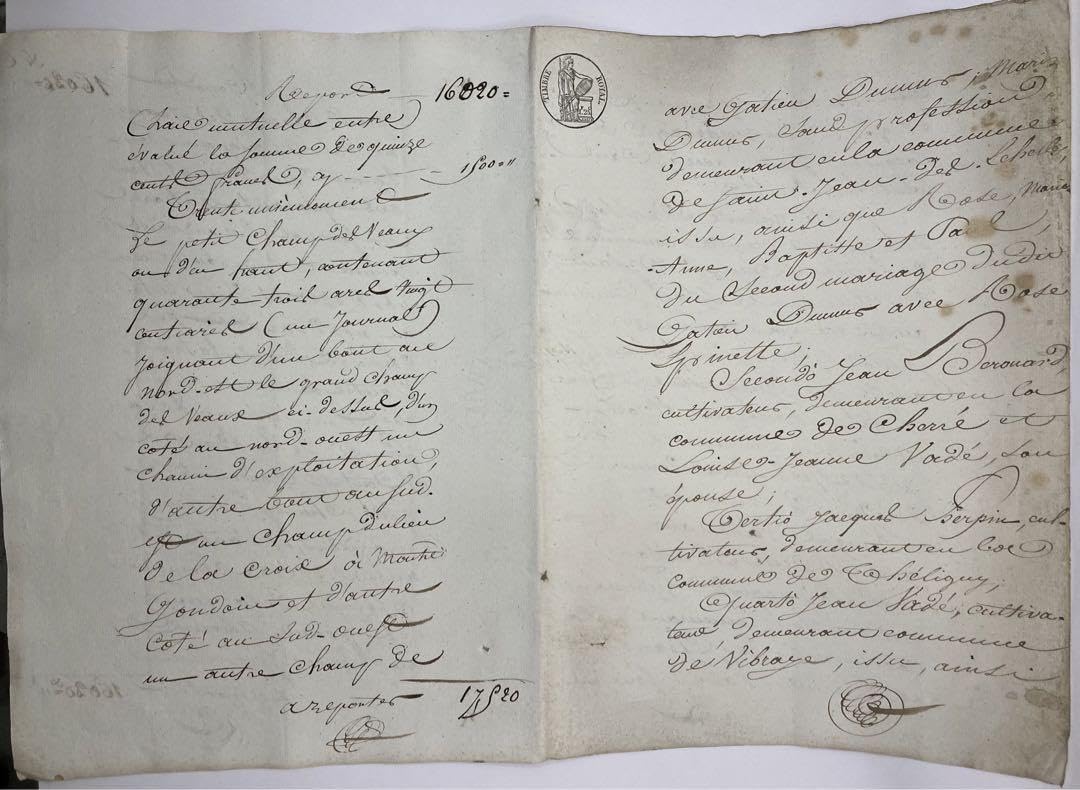 Report 16020=
Chacé mutuelle entre
évalué la somme de quinze
cents francs, cy 1500="
Trente unièmement
Le petit Champ des Veaux
ou d'en haut, contenant
quarante trois ares vingt
centiares (un Journal)
joignant d'un bout au
nord-est le grand champ
des Veaux ci-dessus, d'un
coté au nord-ouest un
chemin d'exploitation,
d'autre bout au sud-
est un champ du lieu
de la Croix à Marthe
Goudoin et d'autre
coté au Sud-ouest
un autre champ de
a reporter 17520
TIMBRE ROYAL
avec Gatien Dumur, Marie
Dumur, sans profession
demeurant en la commune
de Saint-Jean-des-Echelles,
issu, ainsi que Rose, Marie
Anne, Baptiste et Paul
du Second mariage du dit
Gatien Dumur avec Rose
Epinette;
Secondò Jean Berouard,
cultivateur, demeurant en la
commune de Cherré et
Louise-Jeanne Vadé, son
épouse;
Tertiò Jacques Herpin, cul-
tivateur, demeurant en la
commune de Théligny;
Quartò Jean Vadé, cultiva-
teur, demeurant commune
de Vibraye, issu, ainsi